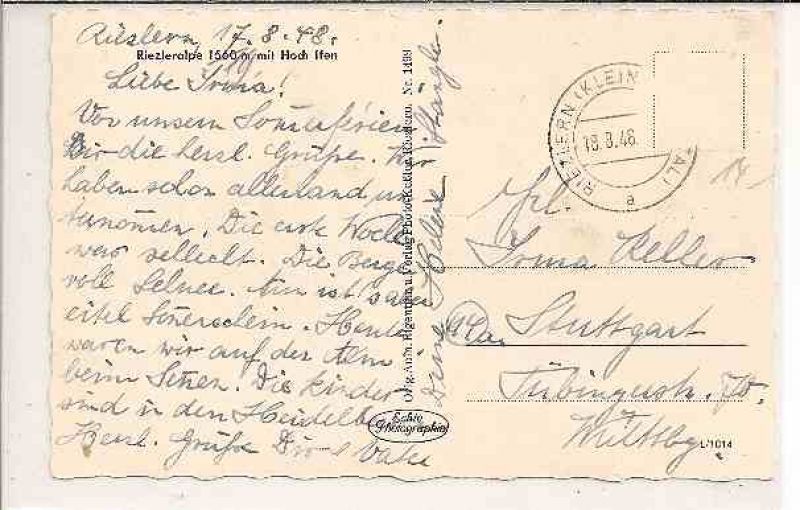 Riezlern, 17.8.48.
Riezleralpe 1560 m, mit Hoch Ifen
Liebe Irma!
Von unsern Sommerferien
Dir die herzl. Grüße. Wir
haben schon allerhand un
ternommen. Die erste Woche
war schlecht. Die Berge
voll Schnee. Nun ist's aber
eitel Sonnenschein. Heute
waren wir auf der Alm
beim Sennen. Die Kinder
sind in den Heidelbee
Herzl. Grüße Dir
Deine Helene
Orig.-Aufn. Eigentum u. Verlag Photo Riezlern. Nr. 1499
Echte
Photographie
RIEZLERN (KLEIN
18.8.48
TAL)
a
Frl.
Irma Keller
(14a) Stuttgart
Tübingerstr. 70.
Württbg.
L/1014